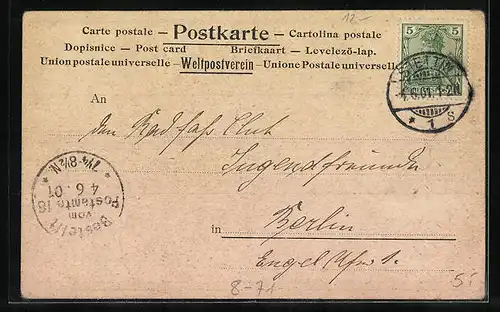 12.-
Carte postale – Postkarte – Cartolina postale
Dopisnice – Post card Briefkaart – Levelező-lap.
Union postale universelle – Weltpostverein – Unione Postale universelle
5 5
STETTIN
1 S
An
den Radfah Club
Jugendfreunde
in Berlin
Engel Ufer 1.
Bestellt
vom
Postamte 16
4.6.01
7¼-8½N.
8-71
5.-